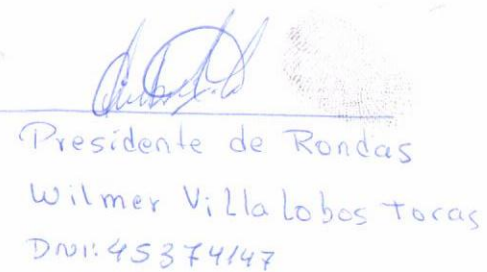 Presidente de Rondas
Wilmer Villalobos Tocas
DNI: 45374147